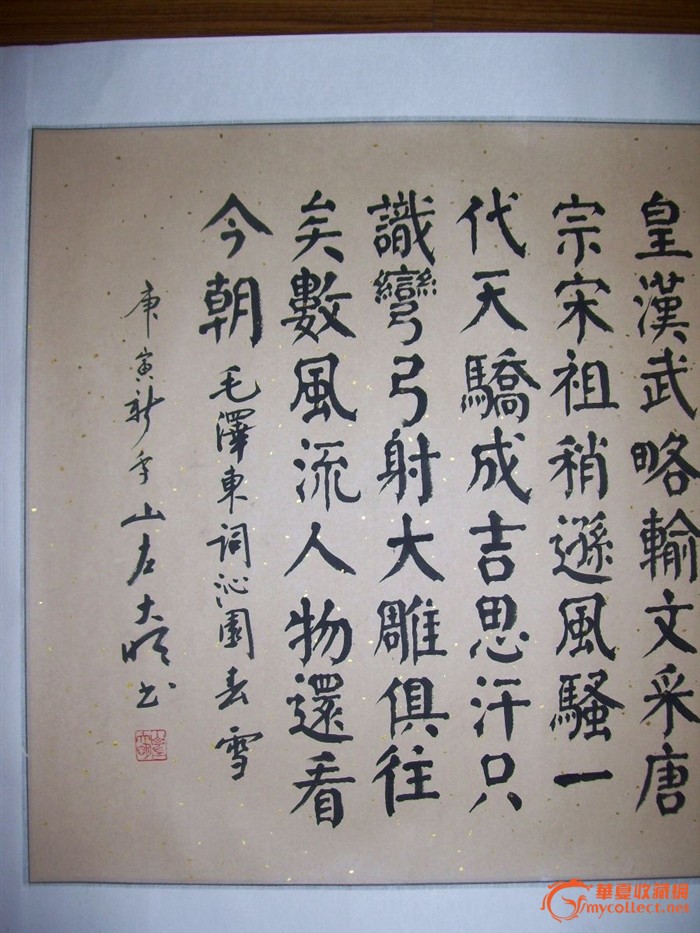 皇漢武略輸文采唐
宗宋祖稍遜風騷一
代天驕成吉思汗只
識彎弓射大雕俱往
矣數風流人物還看
今朝 毛澤東詞沁園春雪
庚寅新年山左大順书
華夏收藏網
mycollect.net